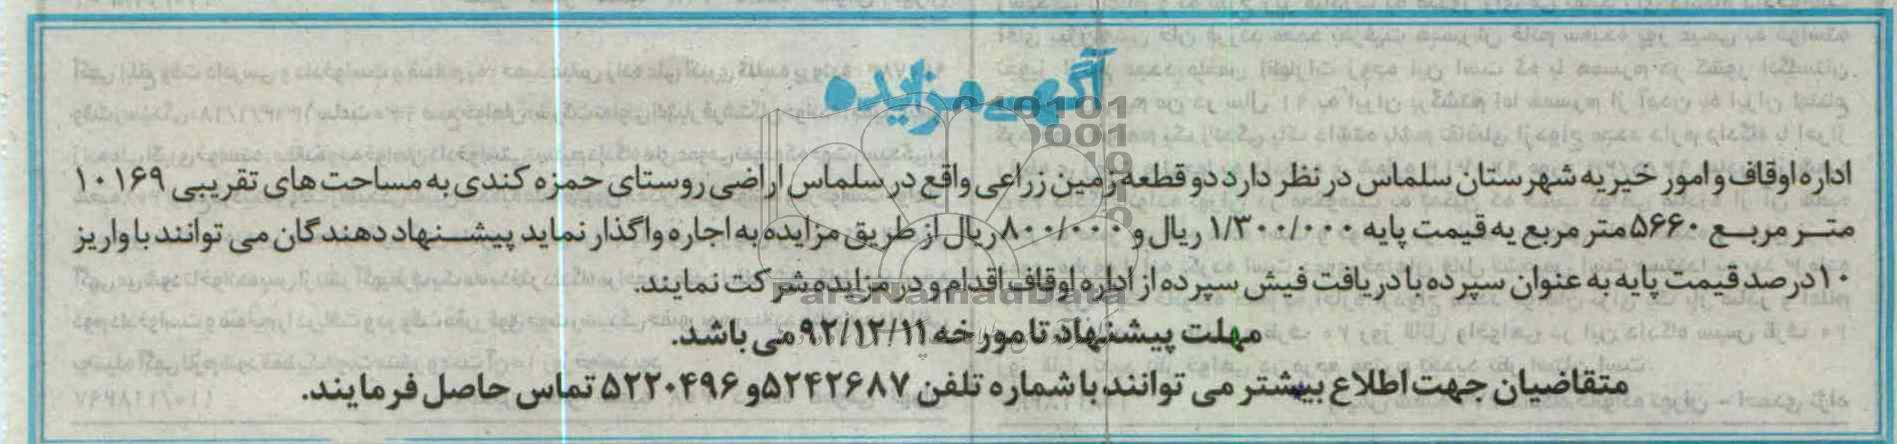 آگهی مزایده
اداره اوقاف و امور خیریه شهرستان سلماس در نظر دارد دو قطعه زمین زراعی واقع در سلماس اراضی روستای حمزه کندی به مساحت های تقریبی ۱۰۱۶۹
متر مربع ۵۶۶۰ متر مربع به قیمت پایه ۱/۳۰۰/۰۰۰ ریال و ۸۰۰/۰۰۰ ریال از طریق مزایده به اجاره واگذار نماید پیشنهاد دهندگان می توانند با واریز
۱۰درصد قیمت پایه به عنوان سپرده با دریافت فیش سپرده از اداره اوقاف اقدام و در مزایده شرکت نمایند.
مهلت پیشنهاد تا مورخه ۹۲/۱۲/۱۱ می باشد.
متقاضیان جهت اطلاع بیشتر می توانند با شماره تلفن ۵۲۴۲۶۸۷ و ۵۲۲۰۴۹۶ تماس حاصل فرمایند.
ParsNamadData